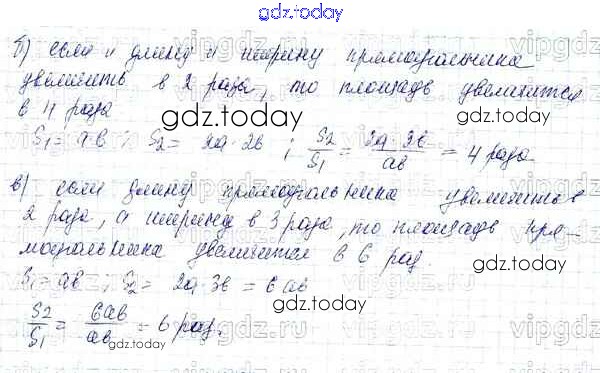 gdz.today
б) если и длину и ширину прямоугольника
увеличить в 2 раза, то площадь увеличится
в 4 раза
gdz.today gdz.today
S₁ = ab ; S₂ = 2a·2b ; S₂/S₁ = 2a·2b/ab = 4 раза
в) если длину прямоугольника увеличить в
2 раза, а ширину в 3 раза, то площадь пря-
моугольника увеличится в 6 раз.
gdz.today
S₁ = ab ; S₂ = 2a·3b = 6ab
gdz.today
S₂/S₁ = 6ab/ab = 6 раз.
gdz.today